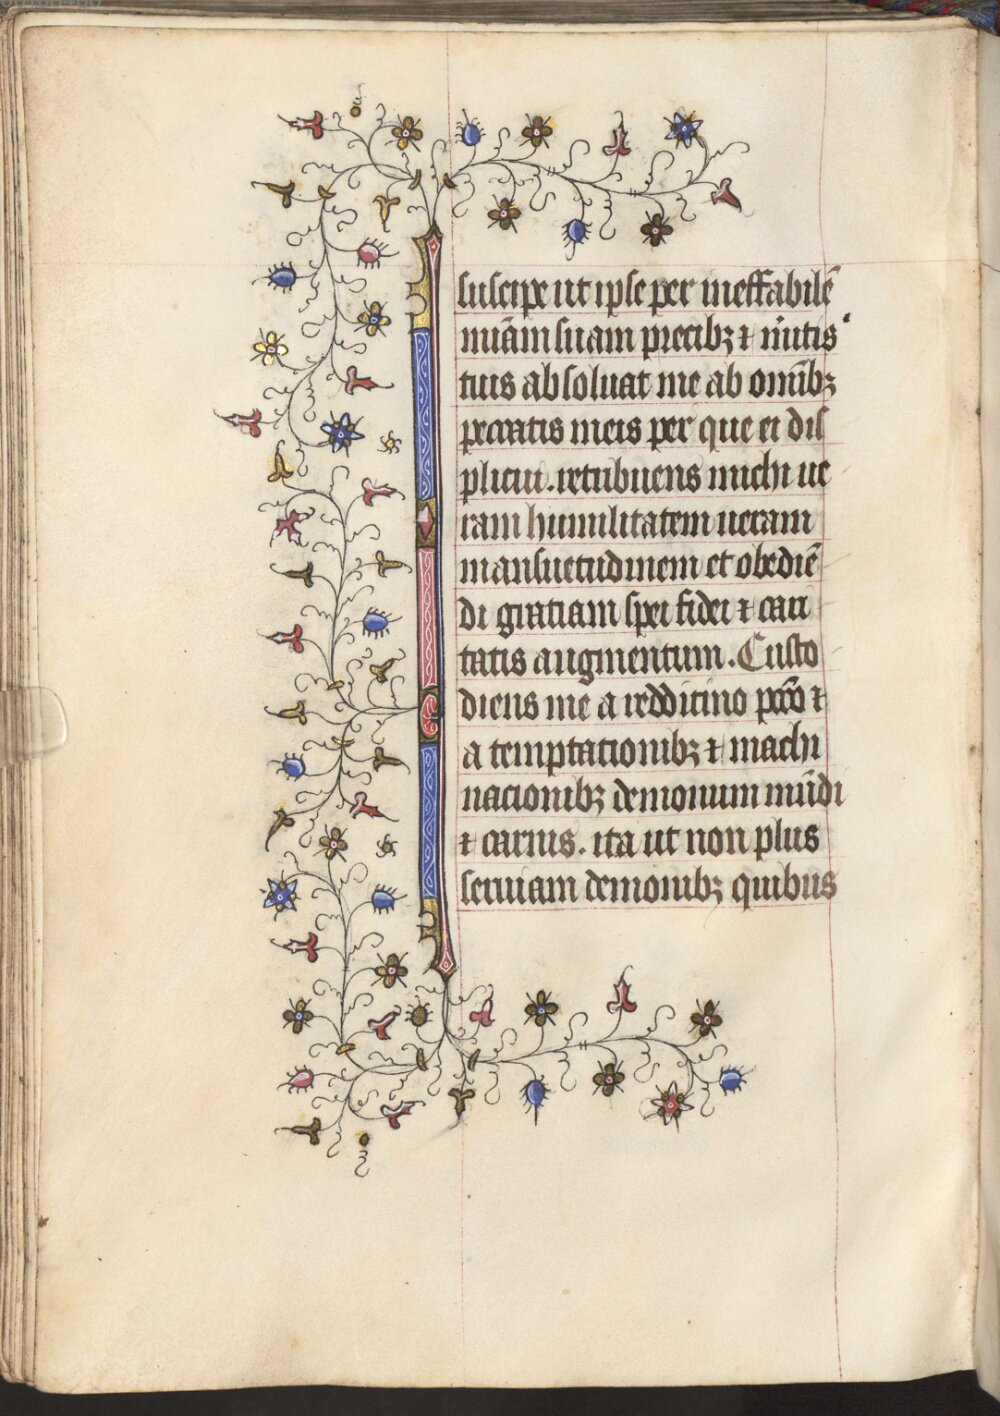 suscipe ut ipse per ineffabilē
nuām suam precibꝫ ⁊ m̄itis
tuis absoluat me ab om̄ibꝫ
peccatis meis per que ei dis
plicui. retribuens michi ue
ram humilitatem ueram
mansuetudinem et obediē
di gratiam spei fidei ⁊ cari
tatis augmentum. Custo
diens me a reddicino pcc̄o ⁊
a temptationibꝫ ⁊ machi
nacionibꝫ demonum mūdi
⁊ carnis. ita ut non plus
seruiam demonibꝫ quibus